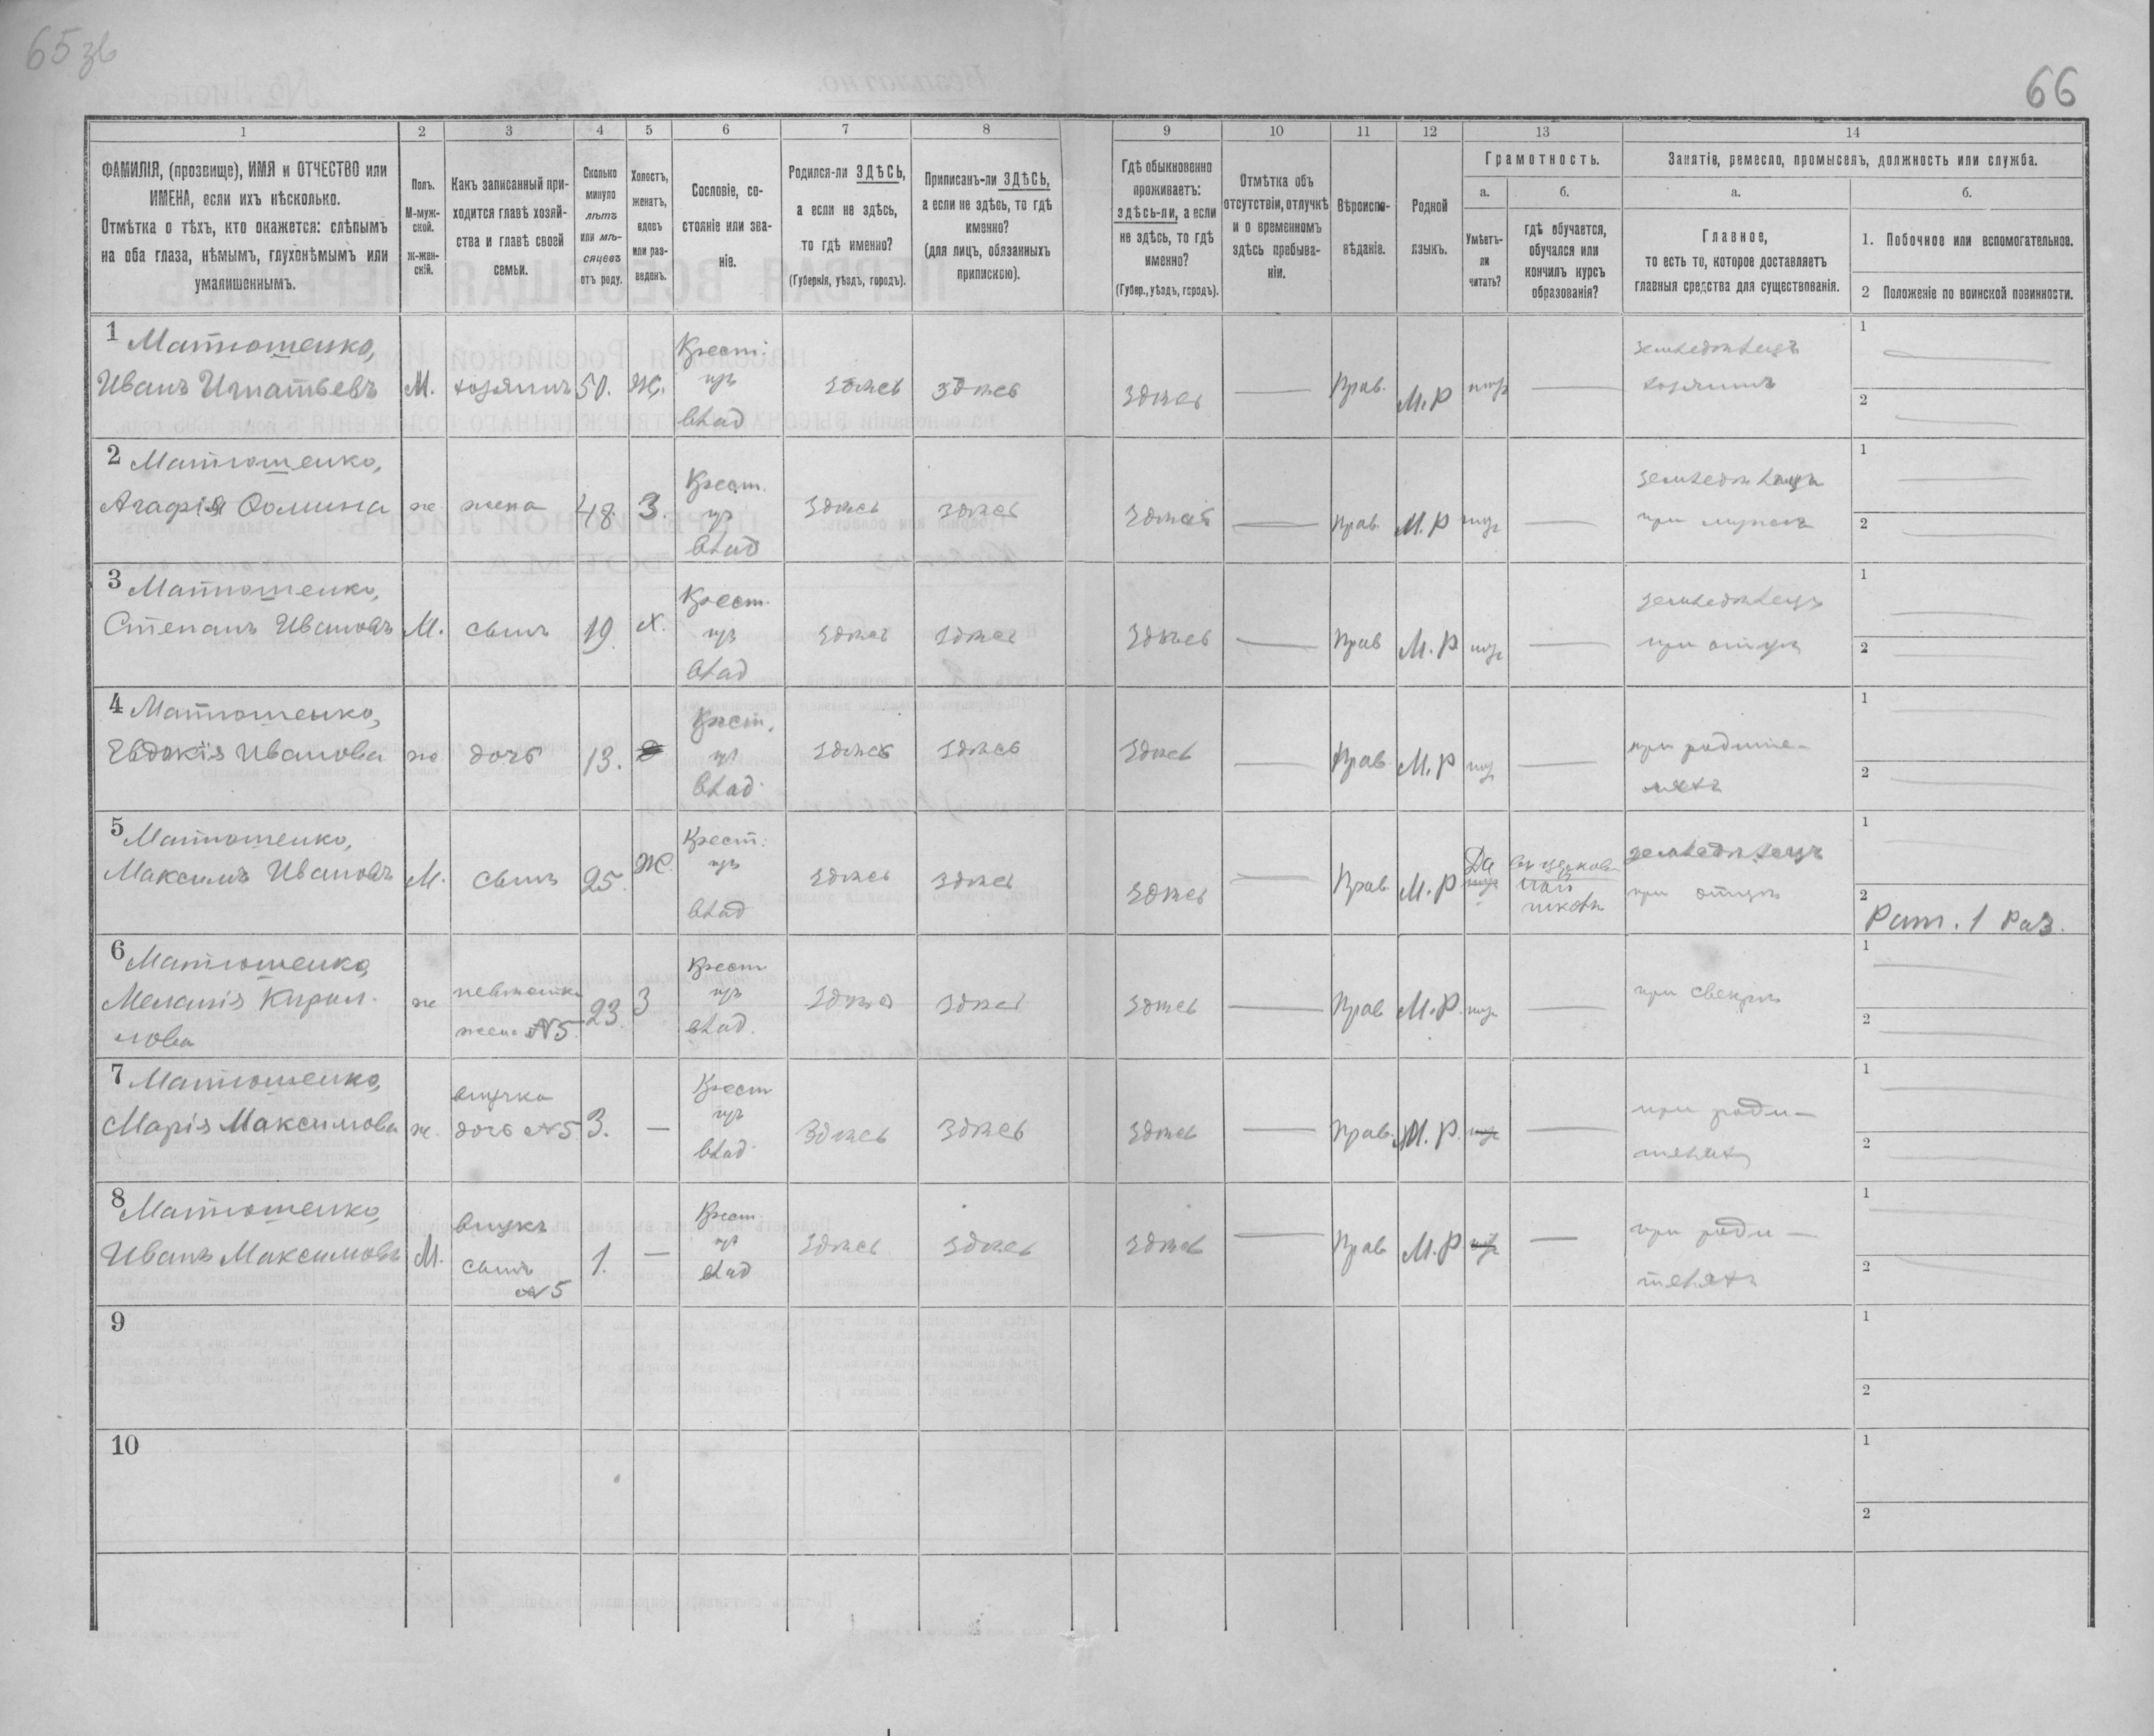 65 зв
66
1
2
3
4
5
6
7
8
9
10
11
12
13
14
ФАМИЛІЯ, (прозвище), ИМЯ и ОТЧЕСТВО или
ИМЕНА, если ихъ нѣсколько.
Отмѣтка о тѣхъ, кто окажется: слѣпымъ
на оба глаза, нѣмымъ, глухонѣмымъ или
умалишеннымъ.
Полъ.
М-муж-
ской.
Ж-жен-
скій.
Какъ записанный при-
ходится главѣ хозяй-
ства и главѣ своей
семьи.
Сколько
минуло
лѣтъ
или мѣ-
сяцевъ
отъ роду.
Холостъ,
женатъ,
вдовъ
или раз-
веденъ.
Сословіе, со-
стояніе или зва-
ніе.
Родился-ли ЗДѢСЬ,
а если не здѣсь,
то гдѣ именно?
(Губернія, уѣздъ, городъ).
Приписанъ-ли ЗДѢСЬ,
а если не здѣсь, то гдѣ
именно?
(для лицъ, обязанныхъ
припискою).
Гдѣ обыкновенно
проживаетъ:
здѣсь-ли, а если
не здѣсь, то гдѣ
именно?
(Губер., уѣздъ, городъ).
Отмѣтка объ
отсутствіи, отлучкѣ
и о временномъ
здѣсь пребыва-
ніи.
Вѣроиспо-
вѣданіе.
Родной
языкъ.
Грамотность.
а.
б.
Умѣетъ-
ли
читать?
гдѣ обучается,
обучался или
кончилъ курсъ
образованія?
Занятіе, ремесло, промыселъ, должность или служба.
а.
б.
Главное,
то есть то, которое доставляетъ
главныя средства для существованія.
1. Побочное или вспомогательное.
2 Положеніе по воинской повинности.
1 Матюшенко,
Иванъ Игнатьевъ М. хозяинъ 50. Ж. Крест. изъ влад здѣсь здѣсь здѣсь — Прав. М.Р нѣтъ — земледѣлецъ хозяинъ 1 — 2 —
2 Матюшенко,
Агафія Фомина ж жена 48. З. Крест. изъ влад здѣсь здѣсь здѣсь — Прав. М.Р нѣтъ — земледѣлецъ при мужѣ 1 — 2 —
3 Матюшенко,
Степанъ Ивановъ М. сынъ 19. Х. Крест. изъ влад здѣсь здѣсь здѣсь — Прав М.Р нѣтъ — земледѣлецъ при отцѣ 1 — 2 —
4 Матюшенко,
Евдокія Иванова ж дочь 13. Крест. изъ влад здѣсь здѣсь здѣсь — Прав М.Р нѣтъ — при родите-
ляхъ 1 — 2 —
5 Матюшенко,
Максимъ Ивановъ М. сынъ 25. Ж. Крест. изъ влад здѣсь здѣсь здѣсь — Прав. М.Р Да нѣтъ въ церков-
ной
школѣ земледѣлецъ при отцѣ 1 — 2
Рат. 1 раз.
6 Матюшенко,
Меланія Кирил-
лова ж невѣстка жена №5. 23. З Крест изъ влад. здѣсь здѣсь здѣсь — Прав М.Р. нѣтъ — при свекрѣ 1 — 2 —
7 Матюшенко,
Марія Максимова ж. внучка дочь №5 3. — Крест изъ влад здѣсь здѣсь здѣсь — Прав. М.Р. нѣтъ — при роди-
теляхъ 1 — 2 —
8 Матюшенко
Иванъ Максимовъ М. внукъ сынъ №5 1. — Крест изъ влад здѣсь здѣсь здѣсь — Прав М.Р. нѣтъ — при роди-
теляхъ 1 — 2
9
1
2
10
1
2